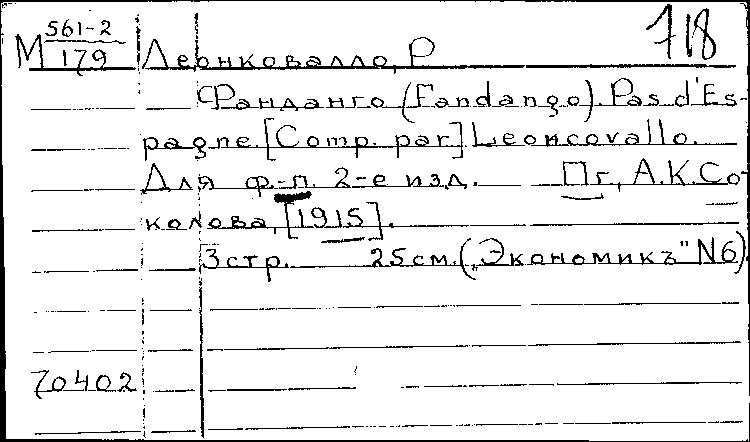 М 561-2/179 Леонковалло, Р 718
Фанданго (Fandango). Pas d'Es-
pagne. [Comp. par] Leoncovallo.
Для ф.-п. 2-е изд. Пг., А.К.Со-
колова, [1915].
3 стр. 25см. („Экономикъ" N6).
70402